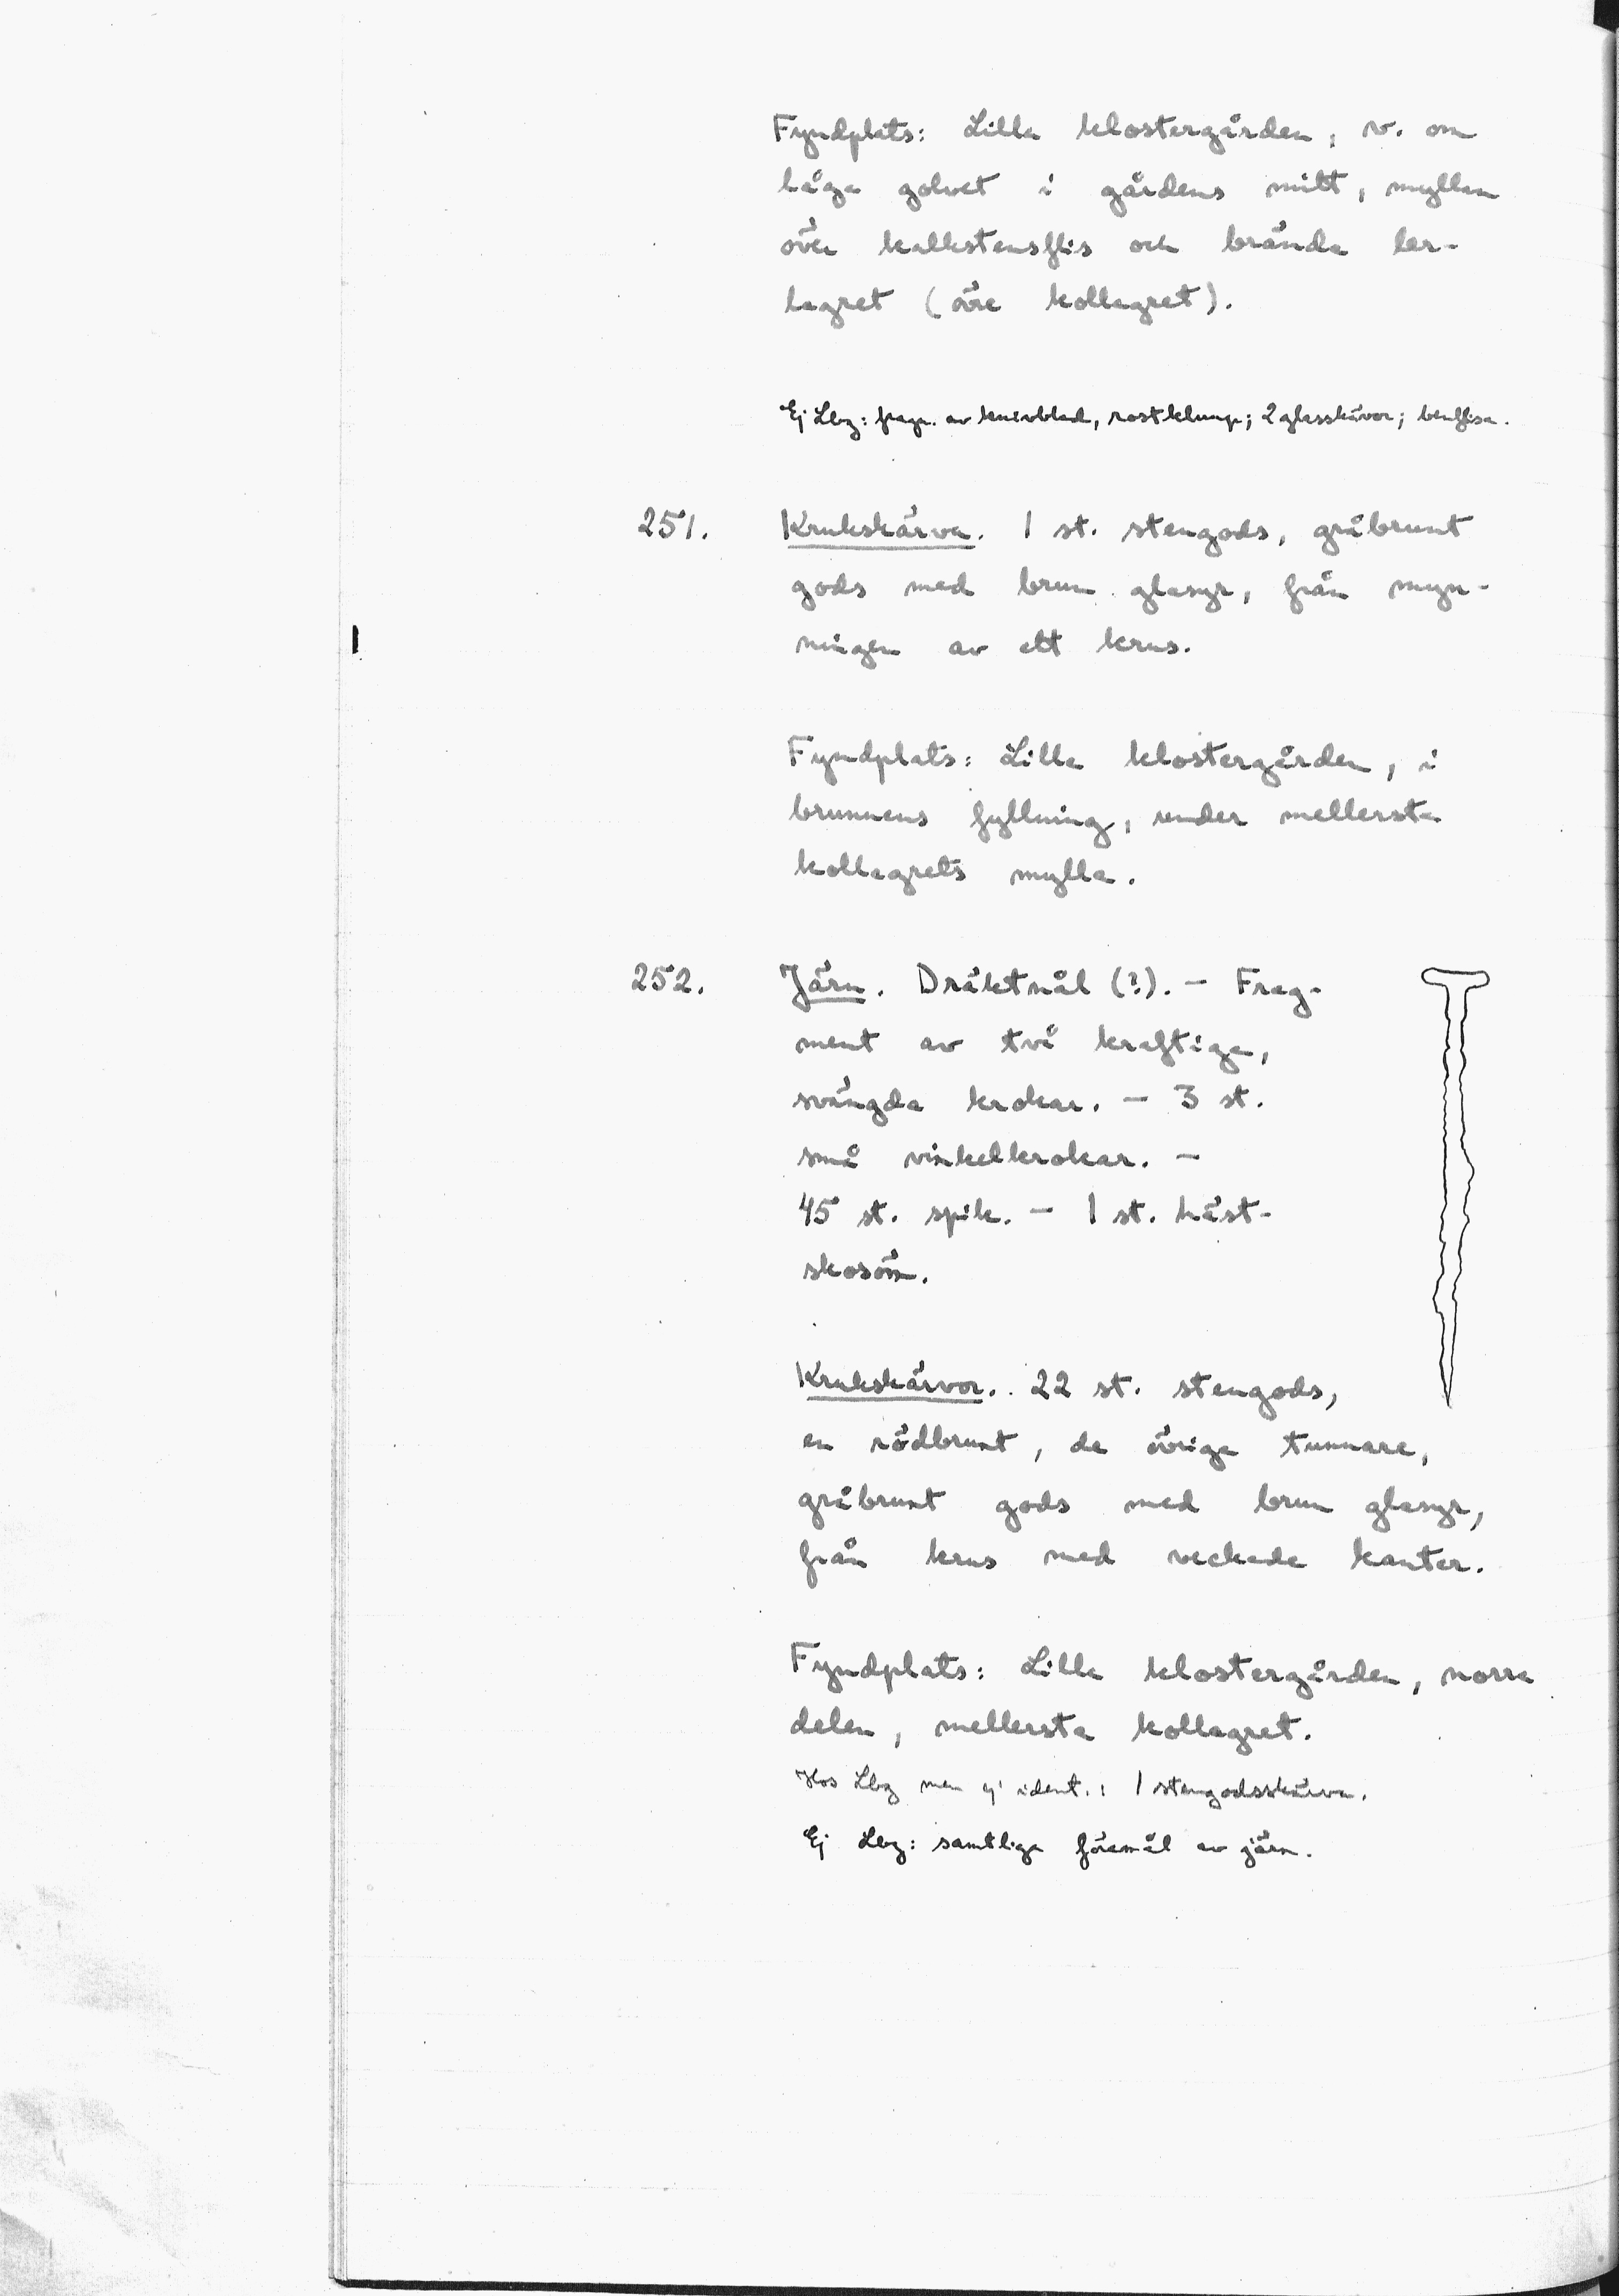 Fyndplats: Lilla klostergården, v. om
låga golvet i gårdens mitt, myllan
över kalkstensflis och brända ler-
lagret (övre kollagret).
Ej Lbg: fragm. av knivblad, rostklump; 2 glasskärvor; benflisa.
251. Krukskärva. 1 st. stengods, gråbrunt
gods med brun glasyr, från myn-
ningen av ett krus.
Fyndplats: Lilla klostergården, i
brunnens fyllning, under mellersta
kollagrets mylla.
252. Järn. Dräktnål (?). — Frag-
ment av två kraftiga,
svängda krokar. — 3 st.
små vinkelkrokar. —
45 st. spik. — 1 st. häst-
skosöm.
Krukskärvor. 22 st. stengods,
en rödbrunt, de övriga tunnare,
gråbrunt gods med brun glasyr,
från krus med veckade kanter.
Fyndplats: Lilla klostergården, norra
delen, mellersta kollagret.
Hos Lbg men ej ident.: 1 stengodsskärva.
Ej Lbg: samtliga föremål av järn.